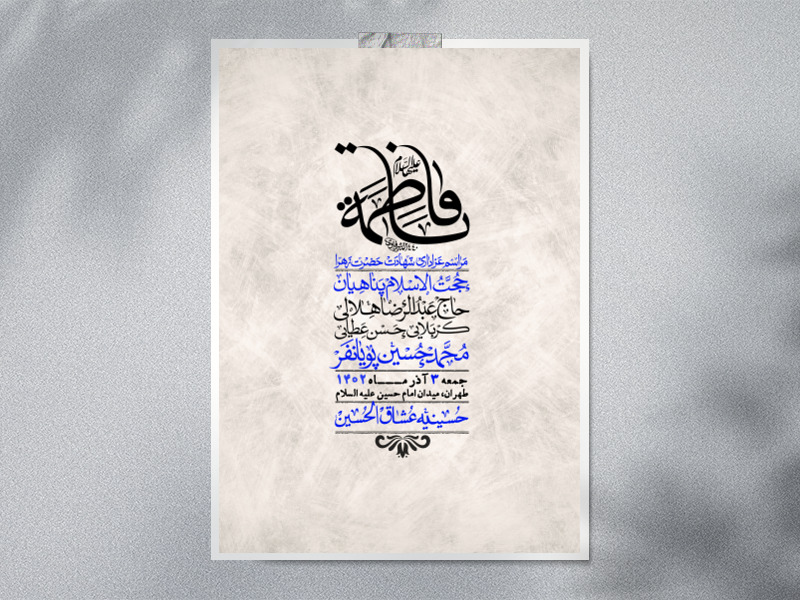 فاطمة
علیها السلام
مراسم عزاداری شهادت حضرت زهرا
حجت الاسلام پناهیان
حاج عبدالرضا هلالی
کربلایی حسن عطایی
محمدحسین پویانفر
جمعه ۳ آذر مــاه ۱۴۰۲
طهران، میدان امام حسین علیه السلام
حسینیه عشاق الحسین